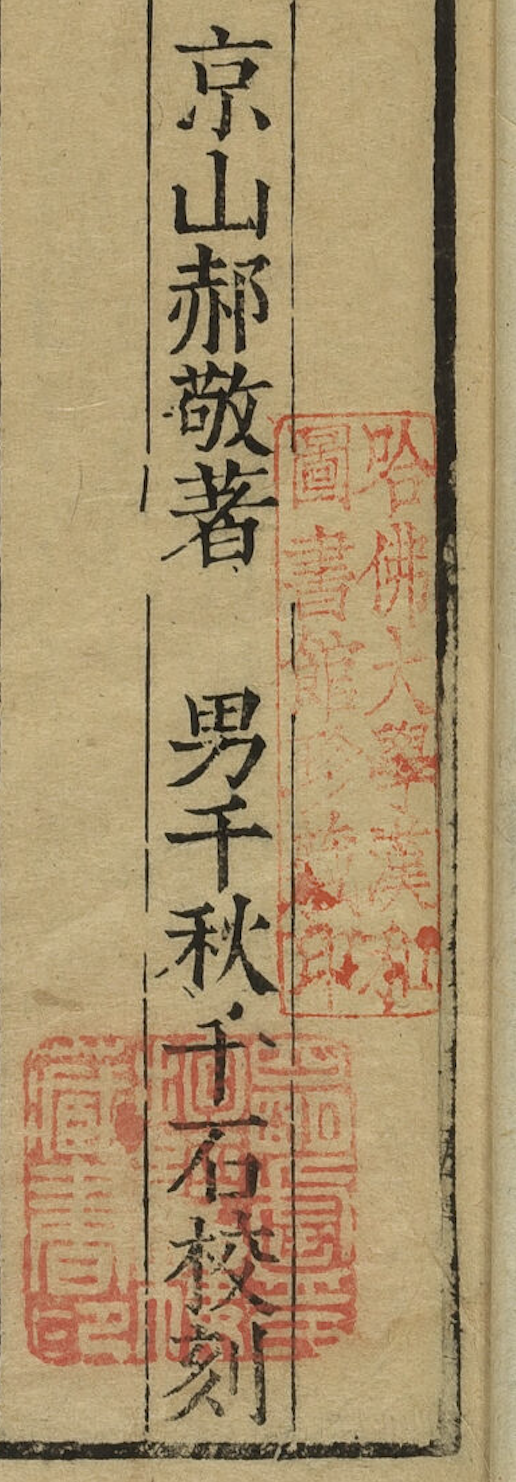 哈佛大學漢和
圖書館珍藏印
京山郝敬著　男千秋千石校刻
藏書印